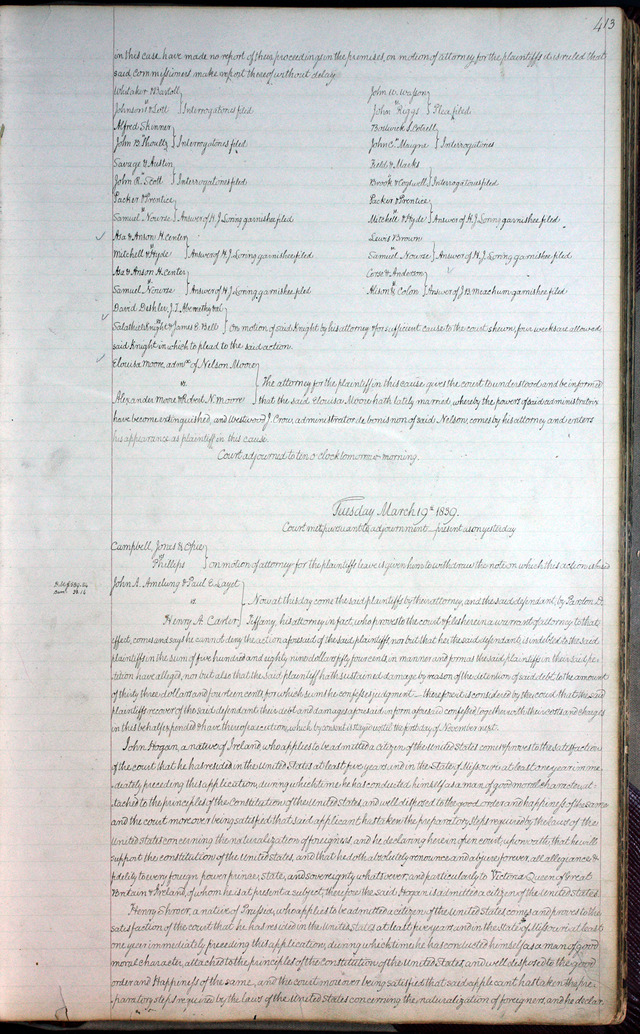 413
in this case, have made no report of their proceedings in the premises, on motion of attorney for the plaintiffs it is ruled that
said commissioners make report thereof without delay
Whitaker & Bartoll
John W. Watson
vs
Johnson & Lott } Interrogatories filed
John Riggs } Plea filed
Alfred Skinner
John B. } Interrogatories filed
John C. Mayne } Interrogatories
Savage & Austin
Field & Marks
John R. Scott } Interrogatories filed
Brook & Cogswell } Interrogatories filed
Packer & Prentice
Packer & Prentice
Samuel Nourse } Answer of H J Loring garnishee filed
Mitchell & Hyde } Answer of H J Loring garnishee filed
Asa & Anson H. Center
Lewis Brown
Mitchell & Hyde } Answer of H J Loring garnishee filed
Samuel Nourse } Answer of H J Loring garnishee filed
Asa & Anson H. Center
Corse & Anderson
Samuel Nourse } Answer of H J Loring garnishee filed
Alison & Colon } Answer of J B Meachum garnishee filed
David Deshler, J. T. Abernathy et al
Salathiel Knight & James E. Bell } On motion of said Knight by his attorney & for sufficient cause to the court shewn, four weeks are allowed
said Knight in which to plead to the said action.
Elouisa Moore, admrx of Nelson Moore
vs. The attorney for the plaintiff in this cause gives the court to understood and be informed
Alexander Moore & Robert N. Moore } that the said Elouisa Moore hath lately married, whereby the powers of said administratrix
have become extinguished, and Westwood J. Crow, administrator de bonis non of said Nelson, comes by his attorney and enters
his appearance as plaintiff in this cause.
Court adjourned to ten o'clock tomorrow morning.
Tuesday March 19th 1839.
Court met pursuant to adjournment present as on yesterday
Campbell, Jones & Opie
Phillips } On motion of attorney for the plaintiffs leave is given him to withdraw the note on which this action is
John A. Amelung & Paul E. Layet
vs. Now at this day come the said plaintiffs by their attorney, and the said defendant, by Pardon D.
Henry A. Carter } Tiffany, his attorney in fact, who proves to the court & files herein a warrant of attorney to that
effect, comes and says he cannot deny the action aforesaid of the said plaintiffs nor but that he the said defendant, is indebted to the said
plaintiffs in the sum of five hundred and eighty nine dollars fifty four cents, in manner and form as the said plaintiffs in their said pe-
tition have alleged, nor but also that the said plaintiff hath sustained damage by reason of the detention of said debt, to the amount
of thirty three dollars and fourteen cents, for which sums he confesses judgment — therefore it is considered by the court that the said
plaintiffs recover of the said defendant their debt and damages aforesaid in form aforesaid confessed, together with their costs and charges
in this behalf expended & have thereof execution, which by consent is stayed until the first day of November next.
John Hogan, a native of Ireland who applies to be admitted a citizen of the United States comes & proves to the satisfaction
of the court that he has resided in the United States at least five years, and in the State of Missouri at least one year im me
diately preceding this application, during which time he has conducted himself as a man of good moral character, at-
tached to the principles of the constitution of the United States, and well disposed to the good order and happiness of the same
and the court moreover being satisfied that said applicant has taken the preparatory steps required by the laws of the
United States concerning the naturalization of foreigners, and he declaring here in open court, upon oath, that he will
support the constitution of the United States, and that he doth absolutely renounce and abjure forever, all allegiance &
fidelity to every foreign power prince, state, and sovereignty whatsoever, and particularly to Victoria Queen of Great
Britain & Ireland, of whom he is at present a subject, therefore the said Hogan is admitted a citizen of the United States.
Henry Shroer, a native of Prussia, who applies to be admitted a citizen of the United States comes and proves to the
satisfaction of the court that he has resided in the United States at least five years and in the State of Missouri at least
one year immediately preceding this application, during which time he has conducted himself as a man of good
moral character, attached to the principles of the constitution of the United States, and well disposed to the good
order and Happiness of the same, and the court moreover being satisfied that said applicant has taken the pre
paratory steps required by the laws of the United States concerning the naturalization of foreigners, and he declar